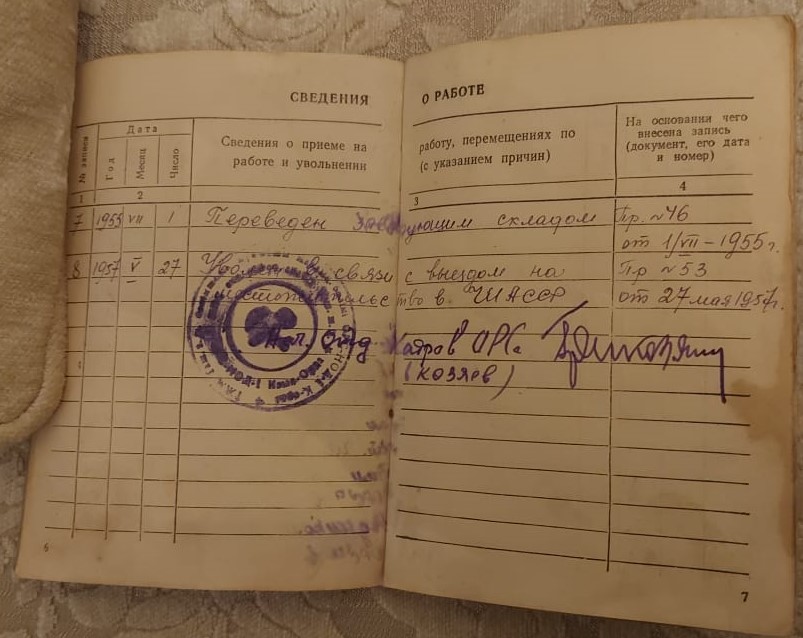 СВЕДЕНИЯ
О РАБОТЕ
№ записи
Дата
Год
Месяц
Число
Сведения о приеме на
работе и увольнении
работу, перемещениях по
(с указанием причин)
На основании чего
внесена запись
(документ, его дата
и номер)
1
2
3
4
7 1955 VII 1 Переведен заведующим складом Пр. №46
от 1/VII – 1955 г.
8 1957 V 27 Уволен в связи с выездом на Пр №53
местожительство в ЧИАССР от 27 мая 1957г.
Нач. Отд Кадров ОРСа
(Козяев)
6
7